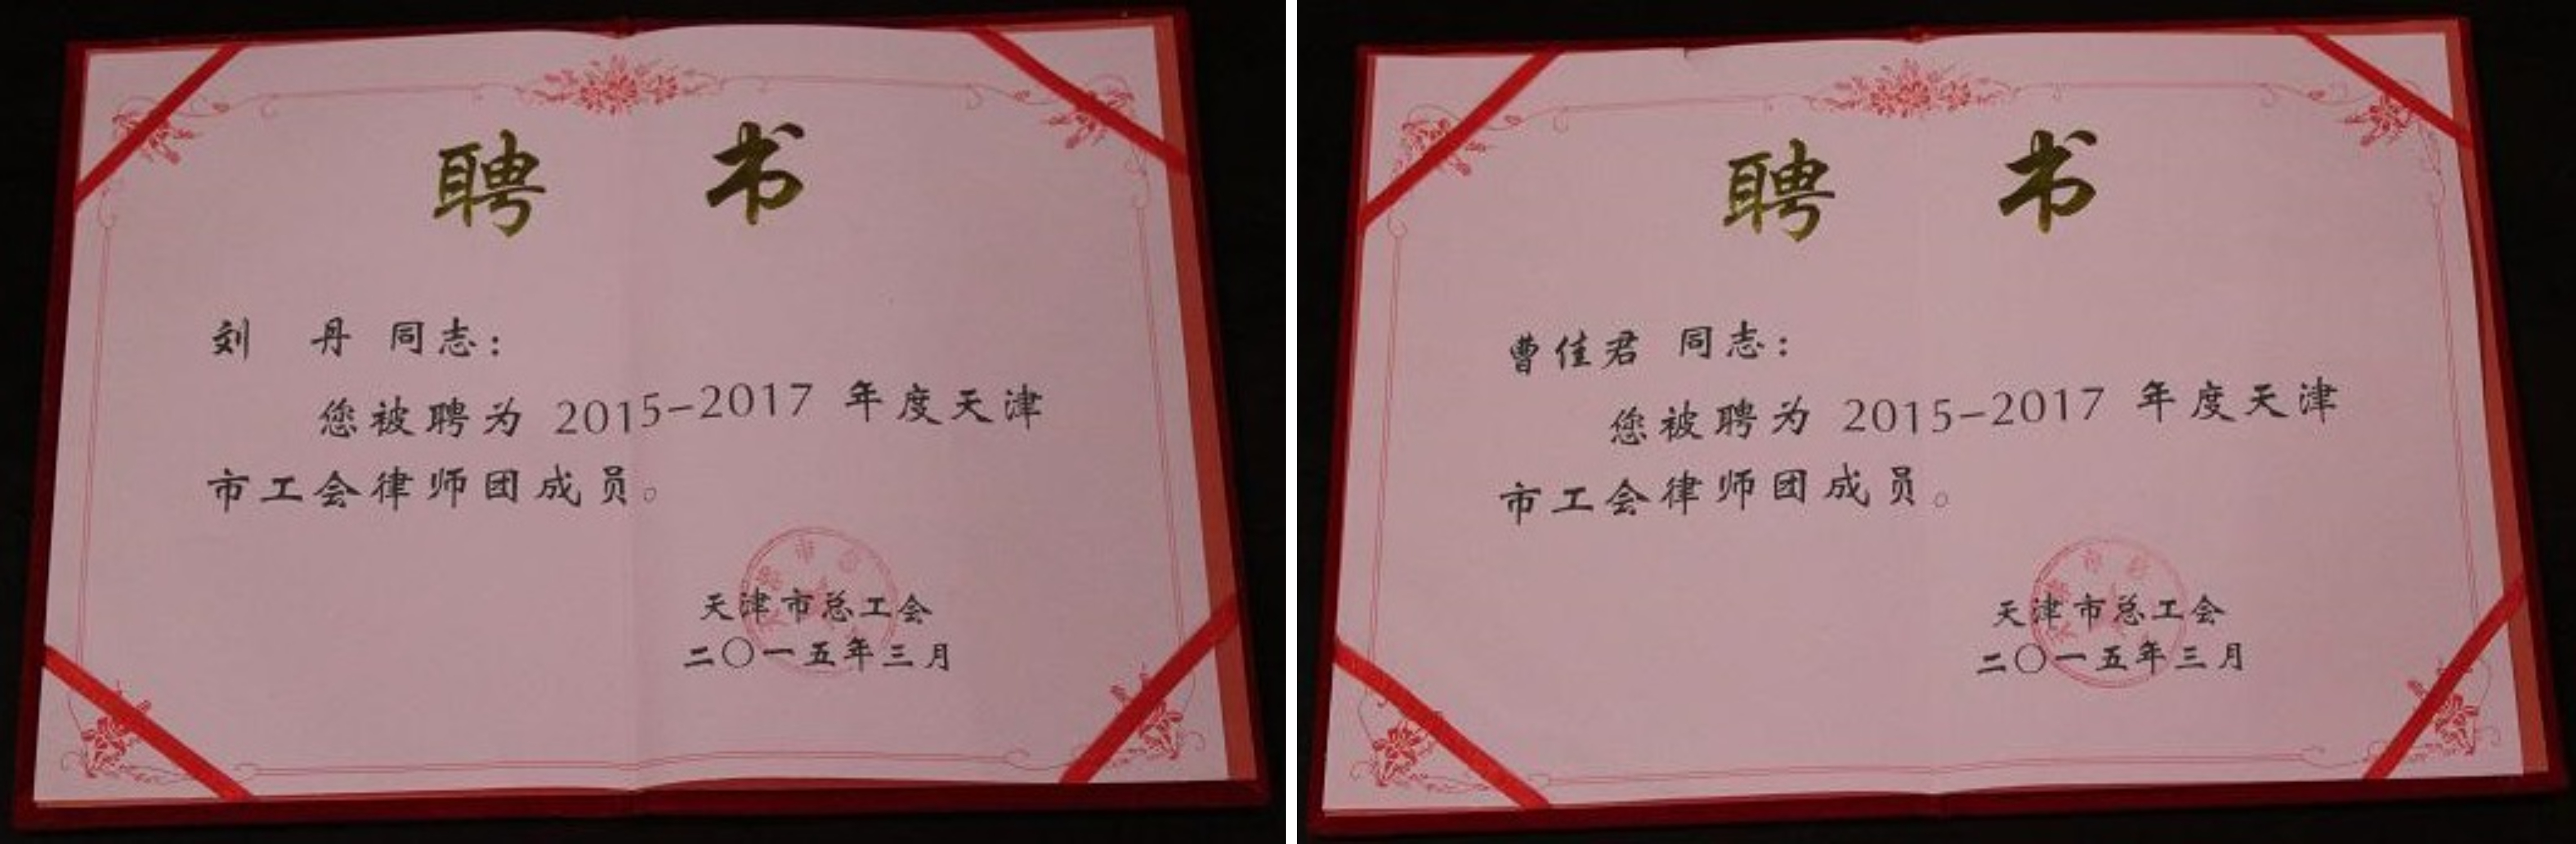 聘 书
刘 丹 同志：
您被聘为 2015-2017 年度天津
市工会律师团成员。
天津市总工会
二〇一五年三月
聘 书
曹佳君 同志：
您被聘为 2015-2017 年度天津
市工会律师团成员。
天津市总工会
二〇一五年三月